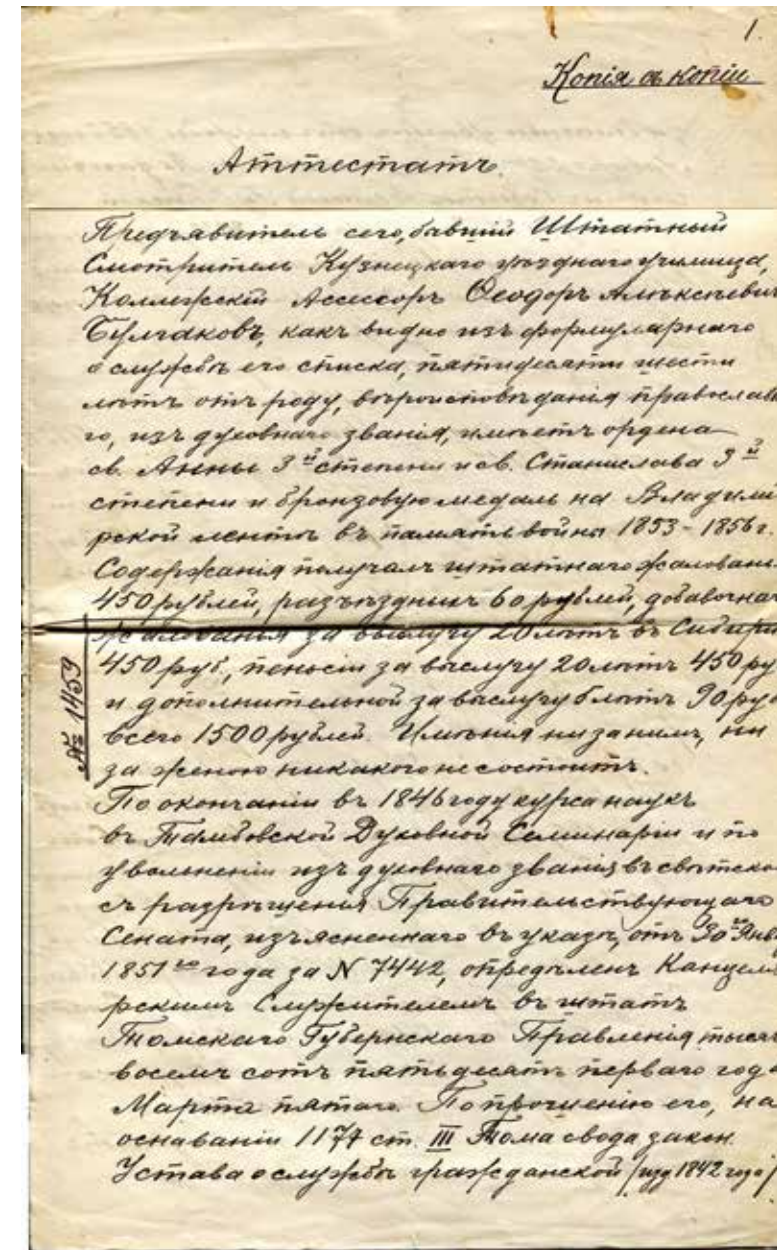 1.
Копія съ копіи
Аттестатъ.
Предъявитель сего, бывшій Штатный
Смотритель Кузнецкаго уѣзднаго училища,
Коллежскій Ассессоръ Ѳеодоръ Алѣксѣевич
Булгаковъ, какъ видно изъ формулярнаго
о службѣ его списка, пятидесяти шести
лѣтъ отъ роду, вѣроисповѣданія православ
го, изъ духовнаго званія, имѣетъ ордена
св. Анны 3й степени и св. Станислава 3й
степени и бронзовую медаль на Владимі
рской лентѣ въ память войны 1853-1856 г.
Содержанія получалъ штатнаго жалованья
450 рублей, разъѣздныхъ 60 рублей, добавочнаг
жалованья за выслугу 20 лѣтъ въ Сибири
450 руб., пенсіи за выслугу 20 лѣтъ 450 ру
и дополнительной за выслугу 5 лѣтъ 90 ру
всего 1500 рублей. Имѣнія ни за нимъ, ни
за женою никакого не состоитъ.
№ 1459
По окончаніи въ 1846 году курса наукъ
въ Тамбовской Духовной Семинаріи и по
увольненіи изъ духовнаго званія въ свѣтско
съ разрѣшенія Правительствующаго
Сената, изъясненнаго въ указѣ, отъ 30го Янв
1851го года за N 7442, опредѣленъ Канцеля
рскимъ Служителемъ въ штатъ
Томскаго Губернскаго Правленія тысяч
восемь сотъ пятьдесятъ перваго года
Марта пятаго. По прошенію его, на
основаніи 1174 ст. III Тома свода закон.
Устава о службѣ гражданской /изд 1842 года/